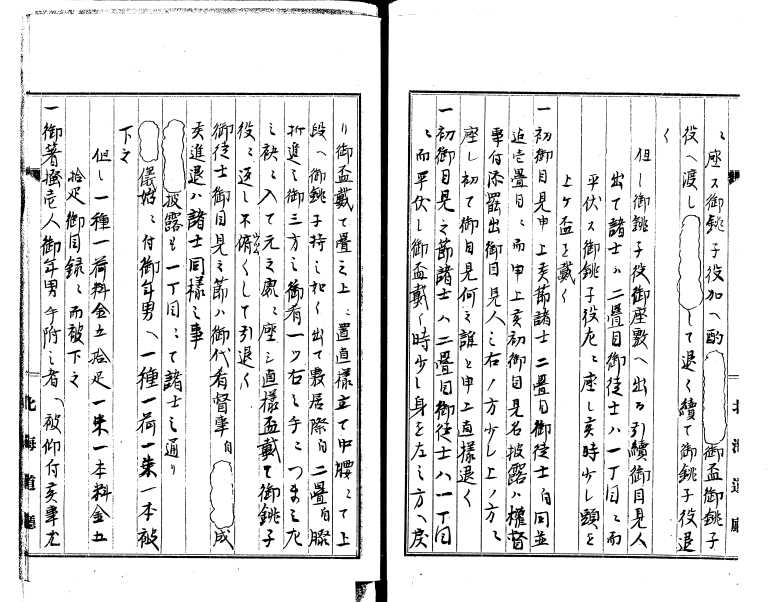 ニ座ス御銚子役加ヘ酌 御盃御銚子
役ヘ渡し して退く續て御銚子役退
く
但し御銚子役御座敷ヘ出る引續御目見人
出て諸士ハ二疊目御徒士ハ一丁目ニ而
平伏ス御銚子役左ニ座し亥時少し頭を
上ケ盃を戴く
一初御目見申上亥節諸士二疊目御徒士 同並
追壱疊目ニ而申上亥初御目見名披露ハ權督
事付添罷出御目見人之右ノ方少し上ノ方ニ
座し初て御目見何之誰と申上直様退く
一初御目見之節諸士ハ二疊目御徒士ハ一丁目
ニ而平伏し御盃戴く時少し身を左之方ヘ戻
り御盃戴て疊之上ニ置直様立て中腰ニて上
段ヘ御銚子持之如く出て敷居際 二疊 膝
折進ミ御三方之御肴一ツ右之手ニつまミ左
之袂ニ入て元之處ニ座シ直様盃戴て御銚子
役ニ返し不俯くして引退く
御徒士御目見之節ハ御代者督事 成
亥進退ハ諸士同様之事
披露も一丁目ニて諸士之通り
儀始ニ付御年男ヘ一種一荷一束一本被
下之
但し一種一荷料金五拾疋一束一本料金五
拾疋御目録ニ而被下之
一御箸搔壱人御年男手附之者ヘ被仰付亥事尤
北海道廳
北海道廳